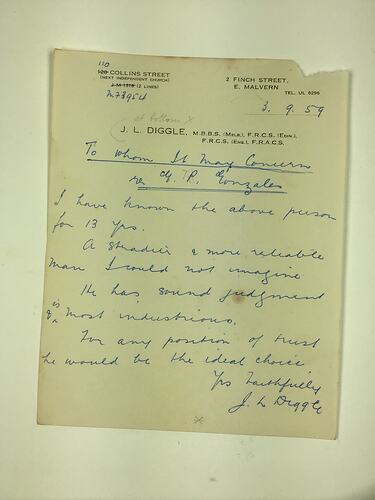 110
120 COLLINS STREET
(NEXT INDEPENDENT CHURCH)
J M 1378 (2 LINES)
M78954
2 FINCH STREET,
E. MALVERN
TEL. UL 6296
3. 9. 59
at bottom x
J. L. DIGGLE, M.B.B.S. (MELB.), F.R.C.S. (EDIN.),
F.R.C.S. (ENG.), F.R.A.C.S.
To Whom It May Concern
re G. R. Gonzales
I have known the above person
for 13 yrs.
A steadier & more reliable
man I could not imagine
He has sound judgment
& is most industrious.
For any position of trust
he would be the ideal choice
Yrs Faithfully
J. L Diggle